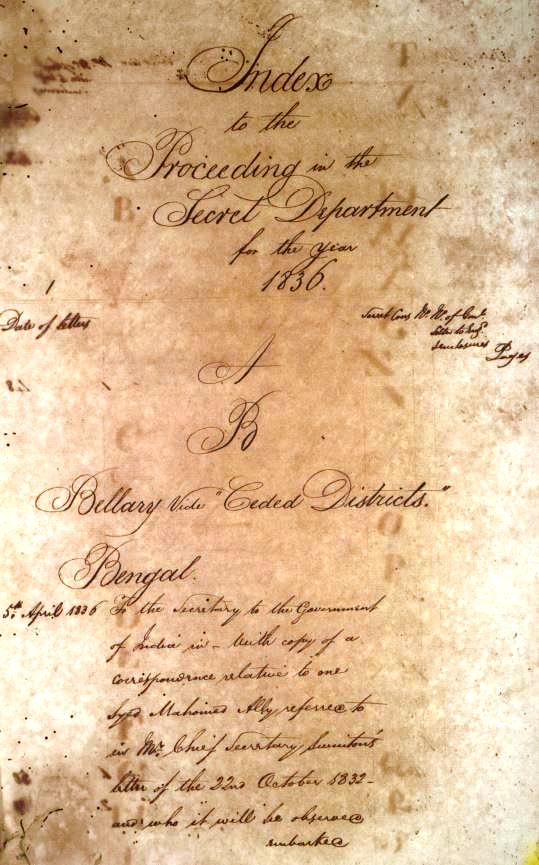 Index
to the
Proceeding in the
Secret Department
for the year
1836.
Date of letters
Secret Cons Mt. Mt. of Gov.
letter to Engd.
enclosures
Pages
A
B
Bellary Vide "Ceded Districts."
Bengal.
5th April 1836 To the Secretary to the Government
of India in - With copy of a
correspondence relative to one
Syed Mahomed Ally referred to
in Mr. Chief Secretary Swinton's
letter of the 22nd October 1832-
and who it will be observed
embarked